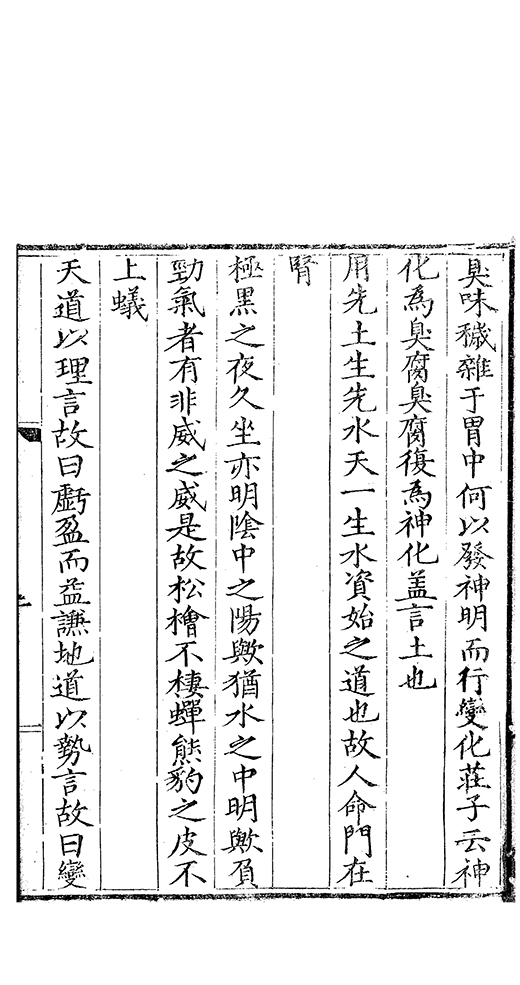 臭味穢雜于胃中何以發神明而行變化莊子云神
化為臭腐臭腐復為神化盖言土也
用先土生先水天一生水資始之道也故人命門在
腎
極黑之夜久坐亦明陰中之陽歟猶水之中明歟負
勁氣者有非威之威是故松檜不棲蟬熊豹之皮不
上蟻
天道以理言故曰虧盈而益謙地道以勢言故曰變